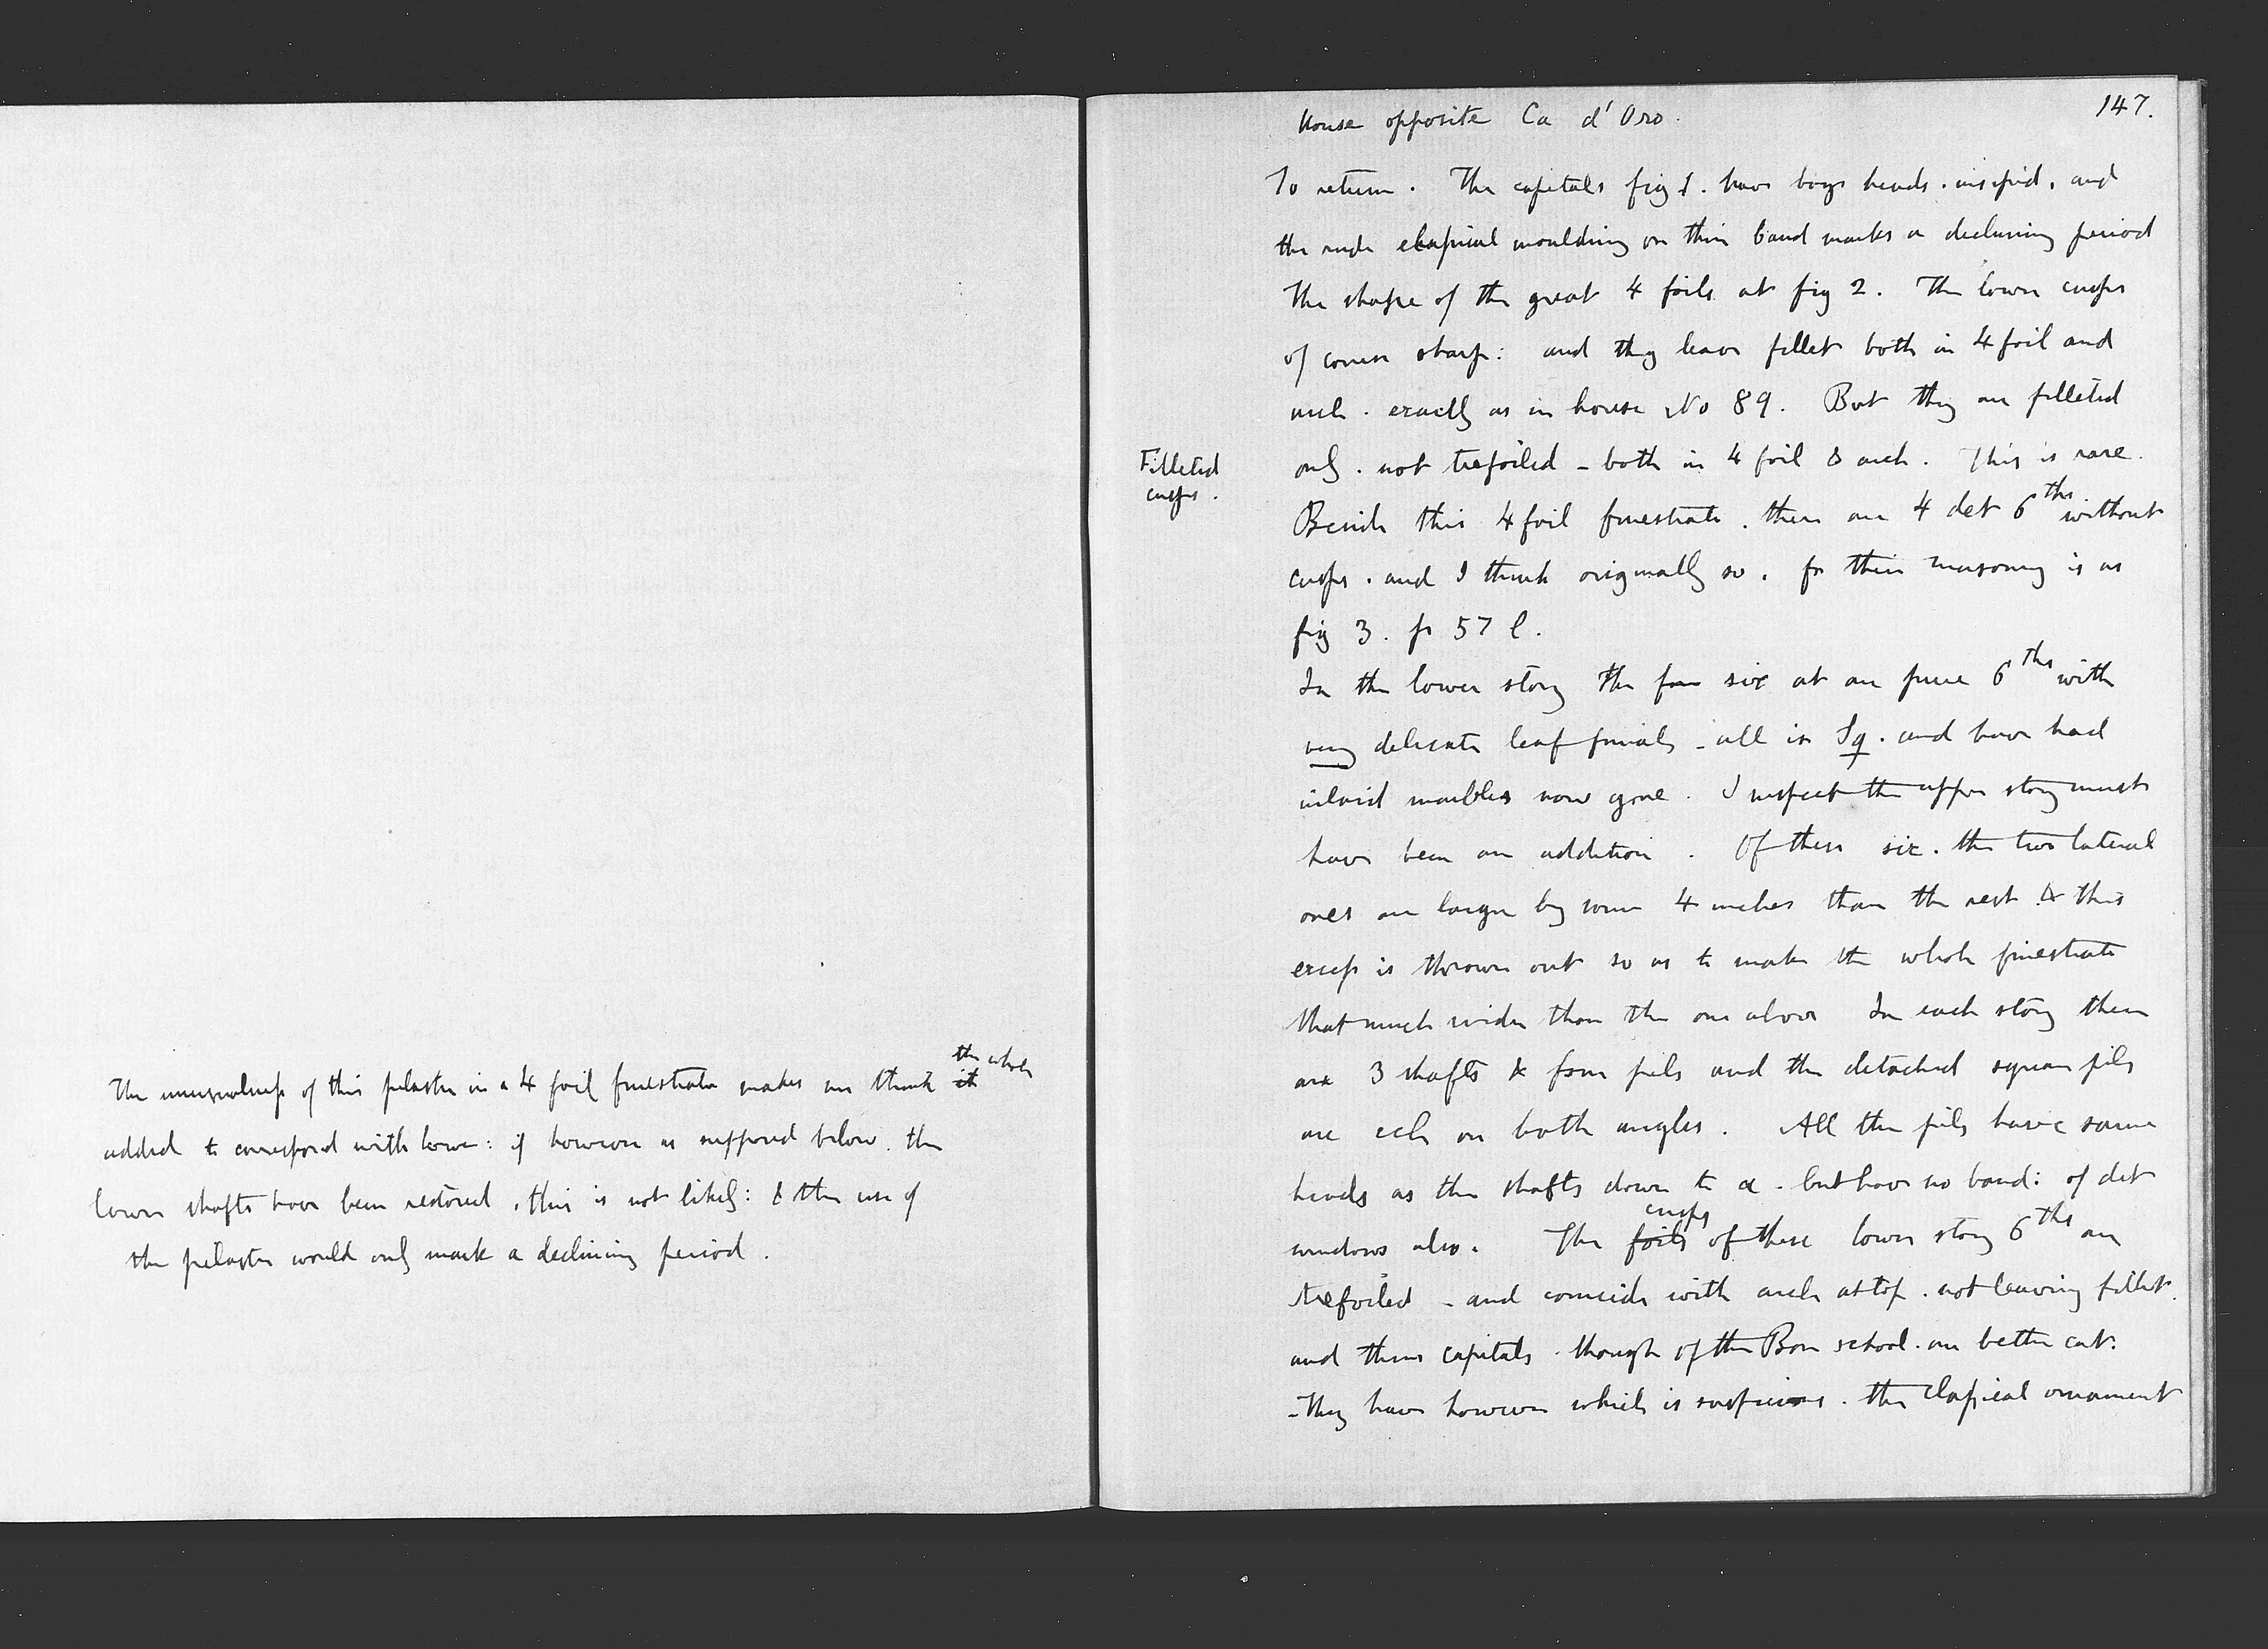 The unusualness of this pilaster in a 4 foil finestrata makes me think it the whole
added to correspond with lower: if however as supposed below. the
lower shafts have been restored, this is not likely: & the use of
the pilaster would only mark a declining period.
House opposite Ca d'Oro.
147.
To return. The capitals fig 1. have boys heads. insipid, and
the rude classical moulding on their band marks a declining period
The shape of the great 4 foils at fig 2. The lower cusps
of course sharp: and they leave fillet both in 4 foil and
arch. exactly as in house No 89. But they are filleted
only. not trefoiled - both in 4 foil & arch. This is rare.
Filleted
cusps.
Beside this 4 foil finestrata. there are 4 det 6ths without
cusps. and I think originally so. for their masonry is as
fig 3. p 57 l.
In the lower story the four six at are pure 6ths with
very delicate leaf finials - all in Sq. and have had
inlaid marbles now gone. I suspect the upper story must
have been an addition. Of these six. the two lateral
ones are larger by some 4 inches than the rest & this
excess is thrown out so as to make the whole finestrata
that much wider than the one above In each story there
are 3 shafts & four pils and the detached square pils
are ech on both angles. All the pils have same
heads as the shafts down to a - but have no band: of det
windows also. The foils cusps of these lower story 6ths are
trefoiled - and coincide with arch at top. not leaving fillet.
and their capitals. though of the Bon school. are better cut:
- They have however which is suspicious. the classical ornament